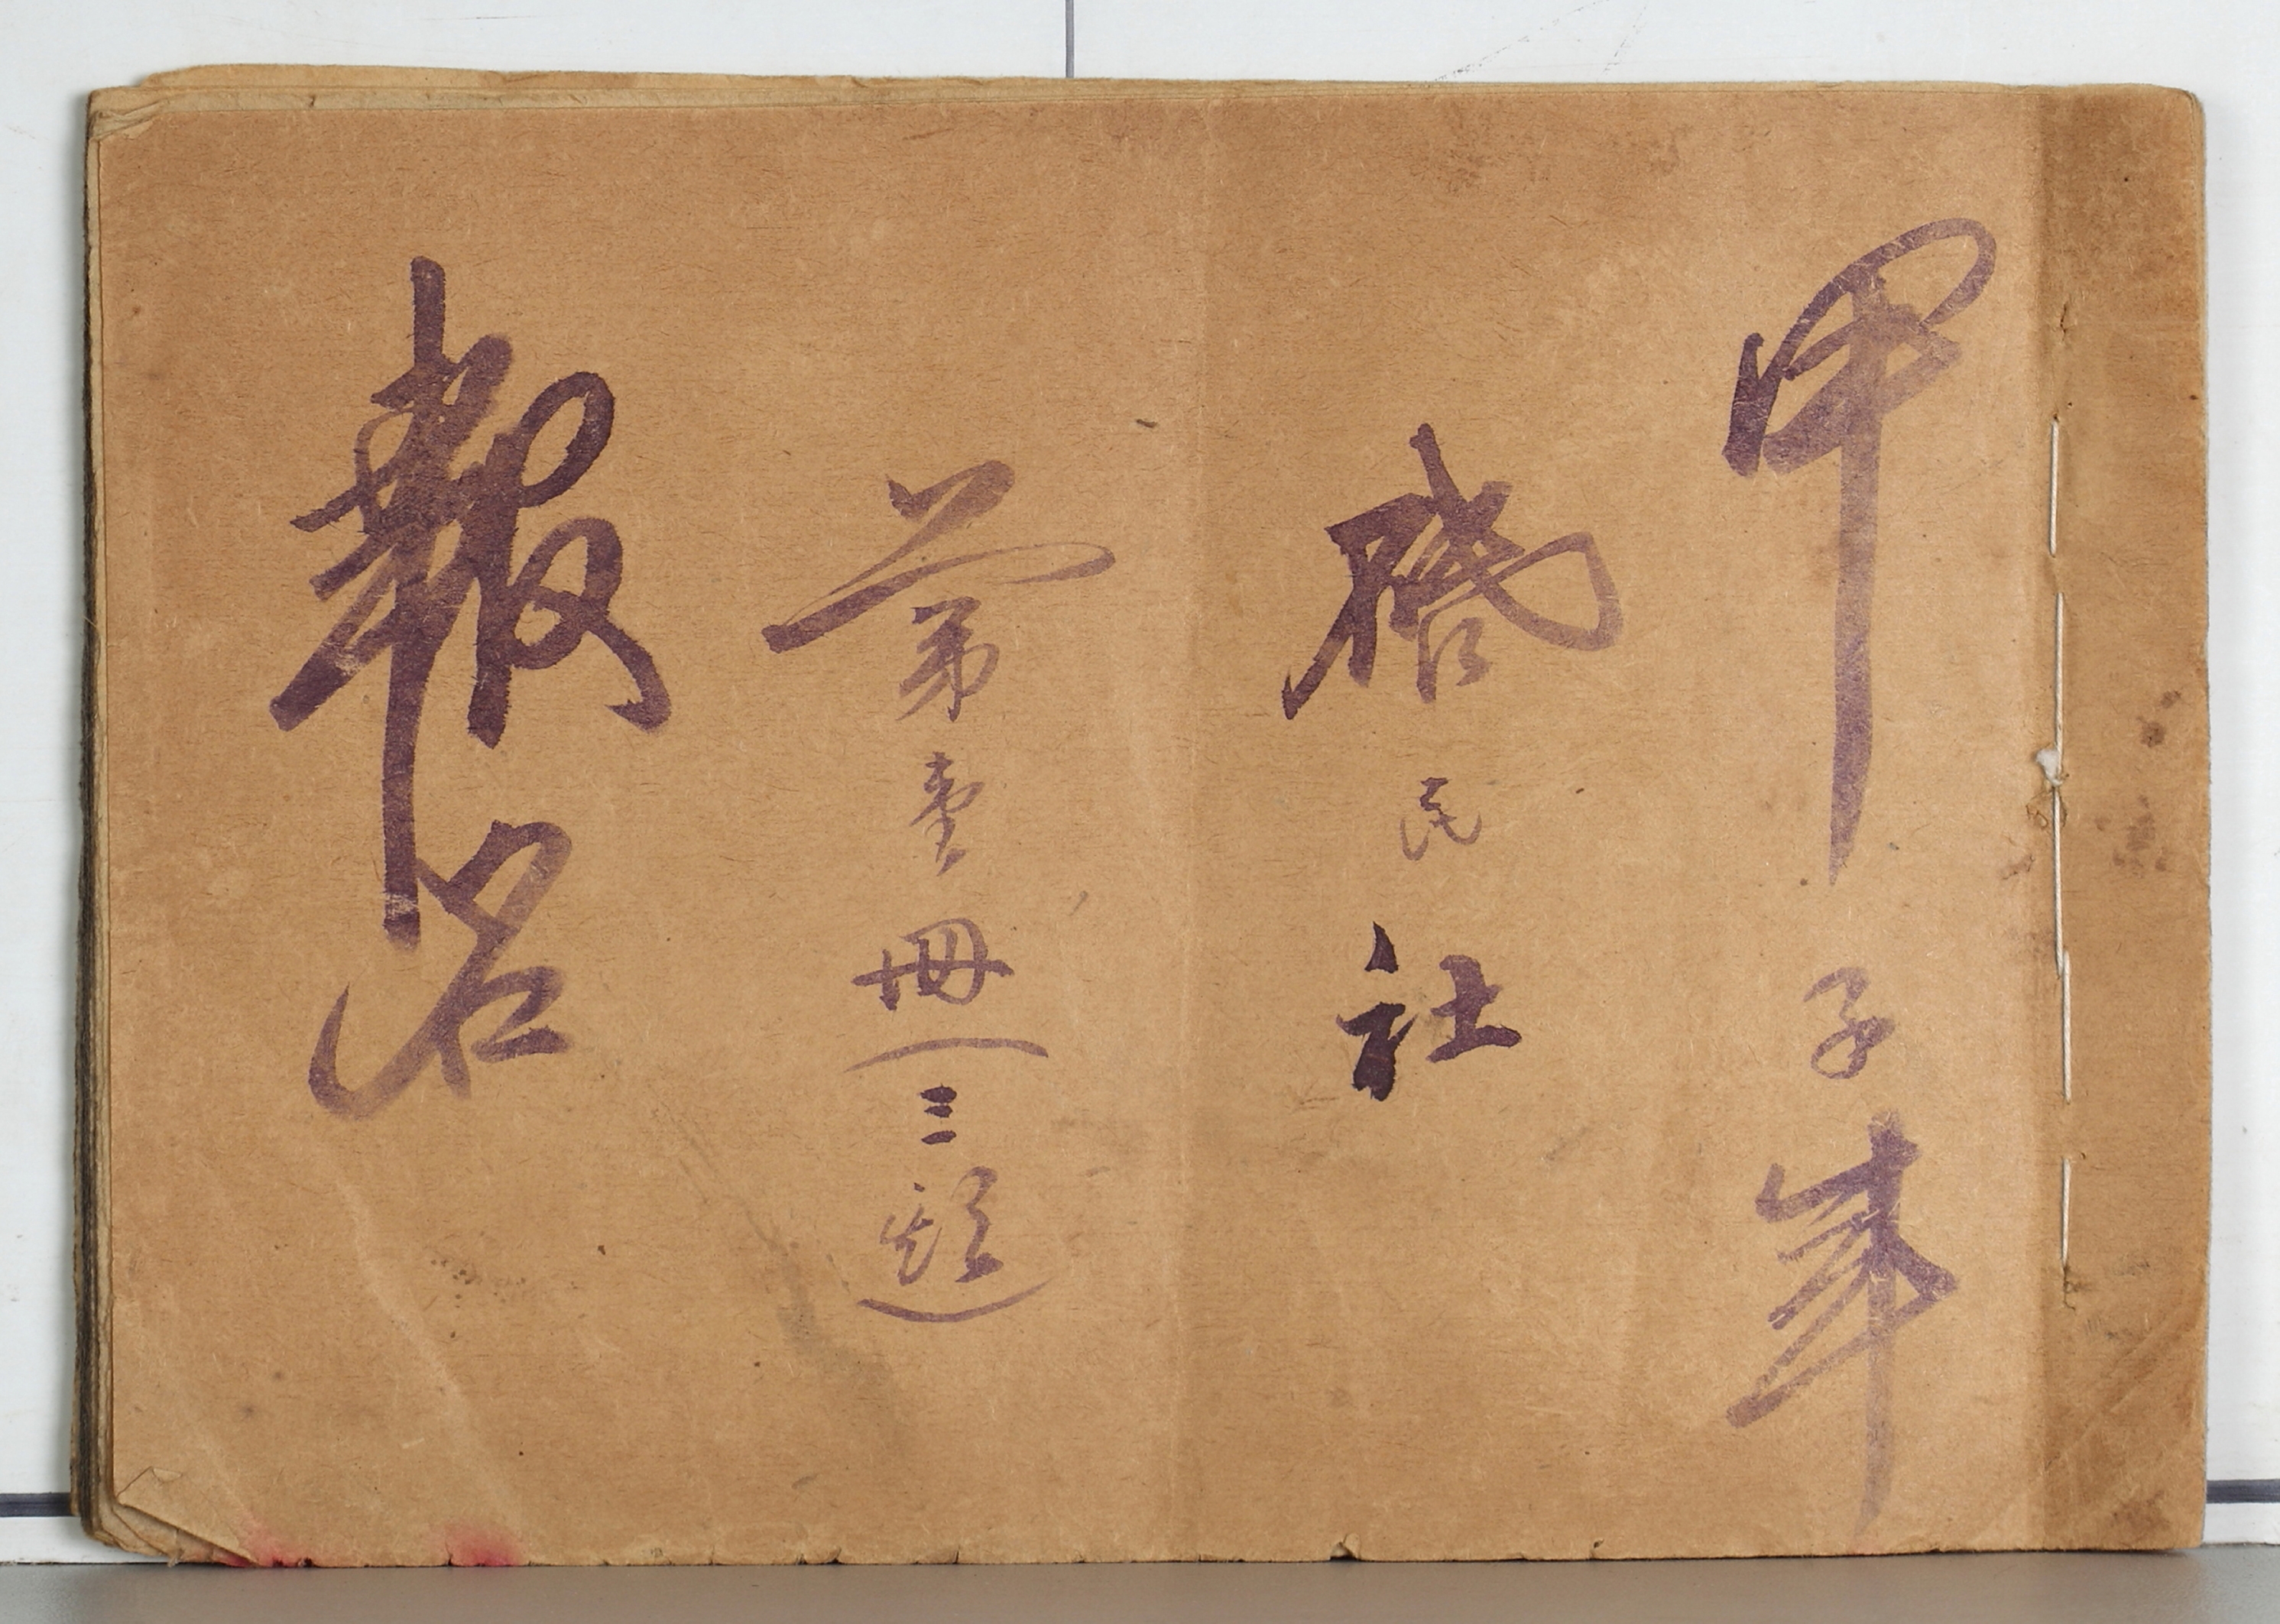 甲子年
啓民社
第壹冊（三題）
報名